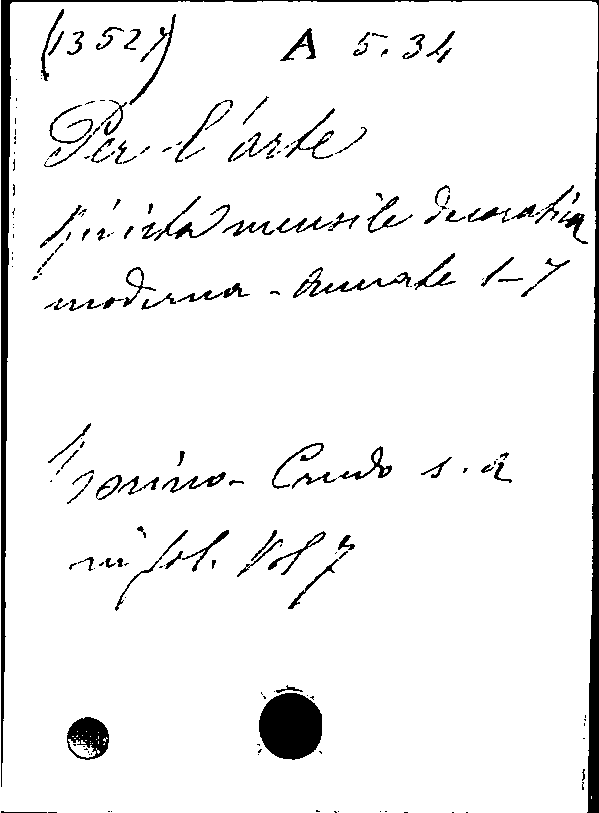 (13527) A 5.34
Per l'arte
rivista mensile decorativa
moderna - Annate 1-7
Torino - Crudo s.a
in fol. Vol 7